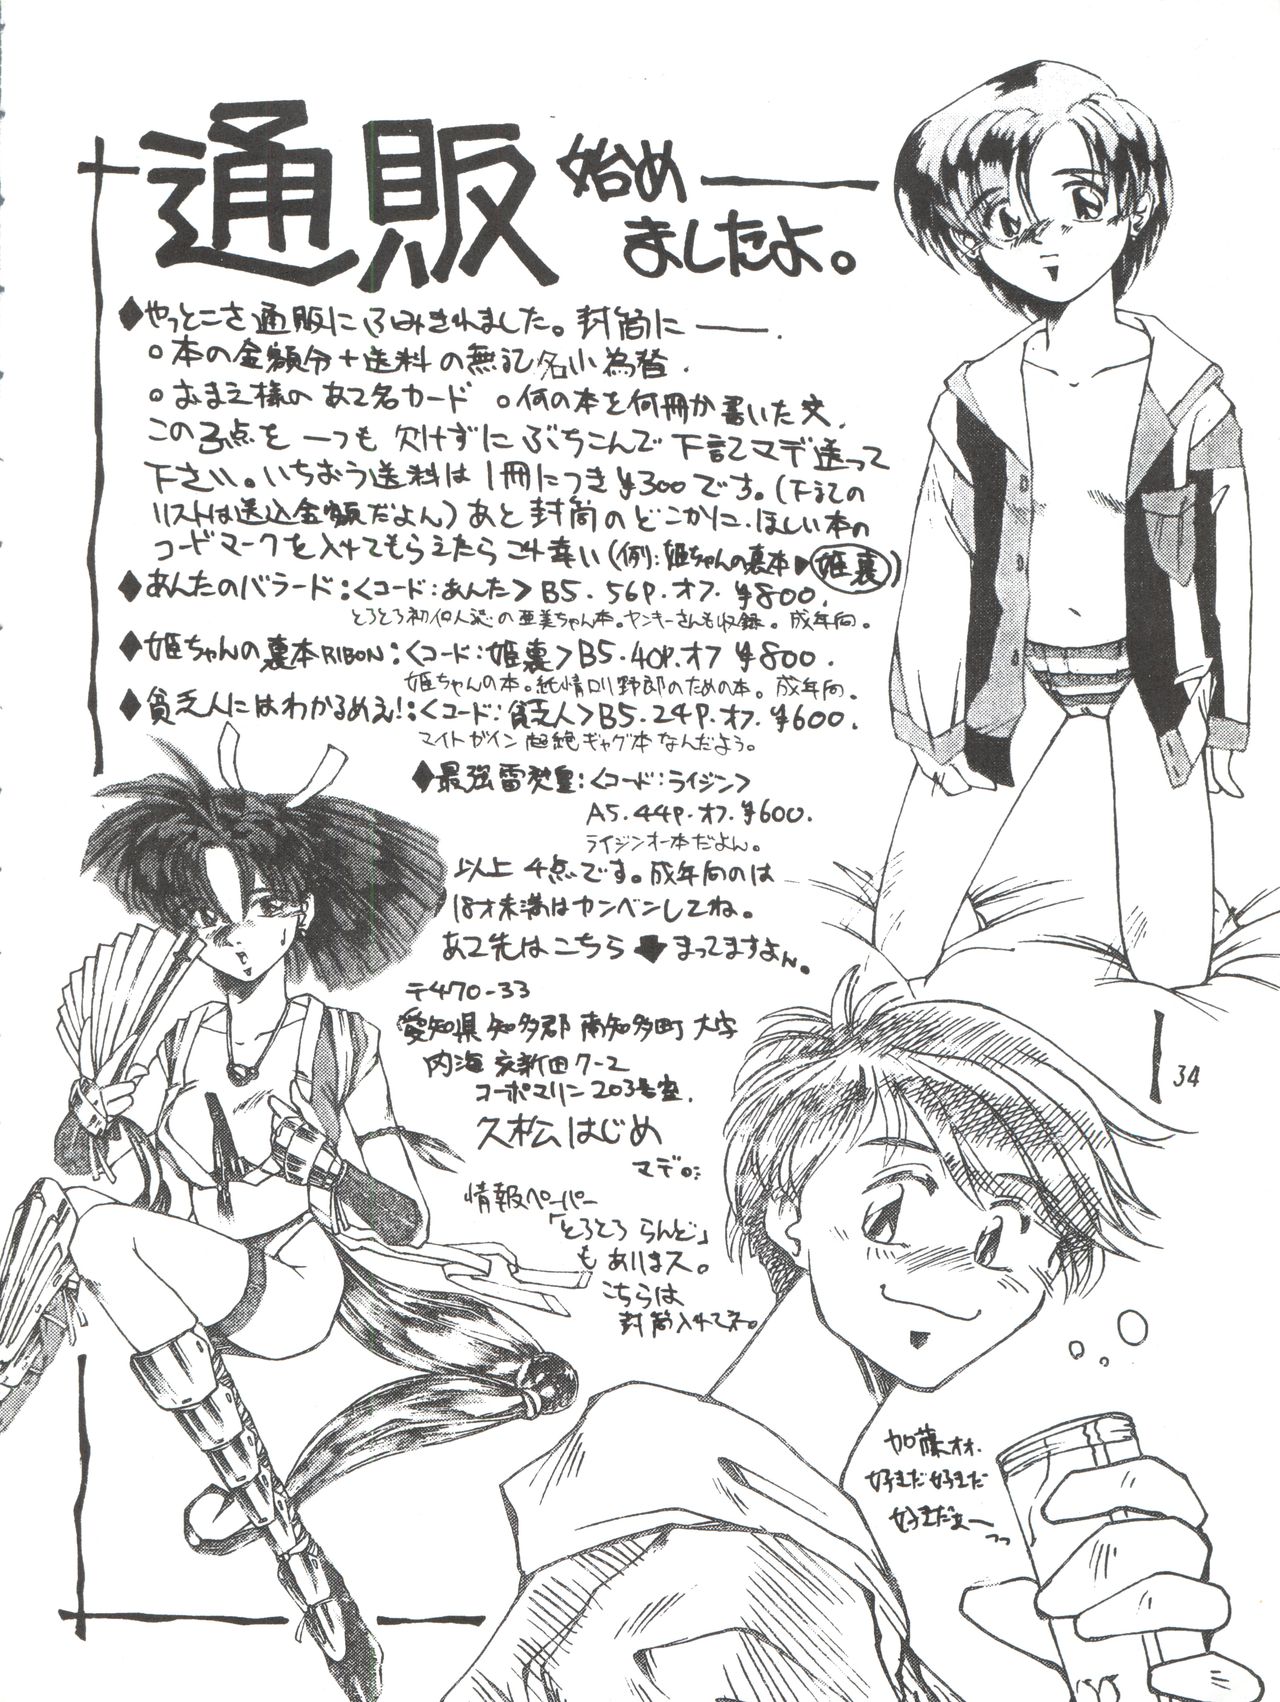 通販 始め
ましたよ。
◆やっとこさ通販にふみきれました。封筒に――.
○本の金額分+送料の無記名小為替.
○おまえ様のあて名カード ○何の本を何冊か書いた文.
この3点を一つも欠けずにぶちこんで下記マデ送って
下さい。いちおう送料は1冊につき¥300です。(下記の
リストは送込金額だよん)あと封筒のどこかに、ほしい本の
コードマークを入れてもらえたらこれ幸い(例:姫ちゃんの裏本▶姫裏)
◆あんたのバラード:<コード:あんた>B5.56P.オフ.¥800.
とろとろ初個人誌の亜美ちゃん本。ヤンキーさんも収録。成年向。
◆姫ちゃんの裏本RIBON:<コード:姫裏>B5.40P.オフ¥800.
姫ちゃんの本。純情ロリ野郎のための本。成年向。
◆貧乏人にはわかるめえ!:<コード:貧乏人>B5.24P.オフ.¥600.
マイトガイン超絶ギャグ本なんだよう。
◆最強雷発皇:<コード:ライジン>
A5.44P.オフ.¥600.
ライジンオー本だよん。
以上4点です。成年向のは
18才未満はカンベンしてね。
あて先はこちら⬇まってますよん。
〒470-33
愛知県知多郡南知多町大字
内海 新田7-2
コーポマリン203号室.
久松はじめ
マデ。
情報ペーパー
「とろとろらんど」
もありまス。
こちらは
封筒入れてネ。
34
加藤
好きだ好きだ
好きだぁーっっ